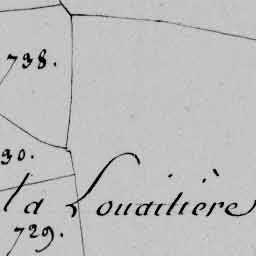 738.
30.
la Louatière
729.